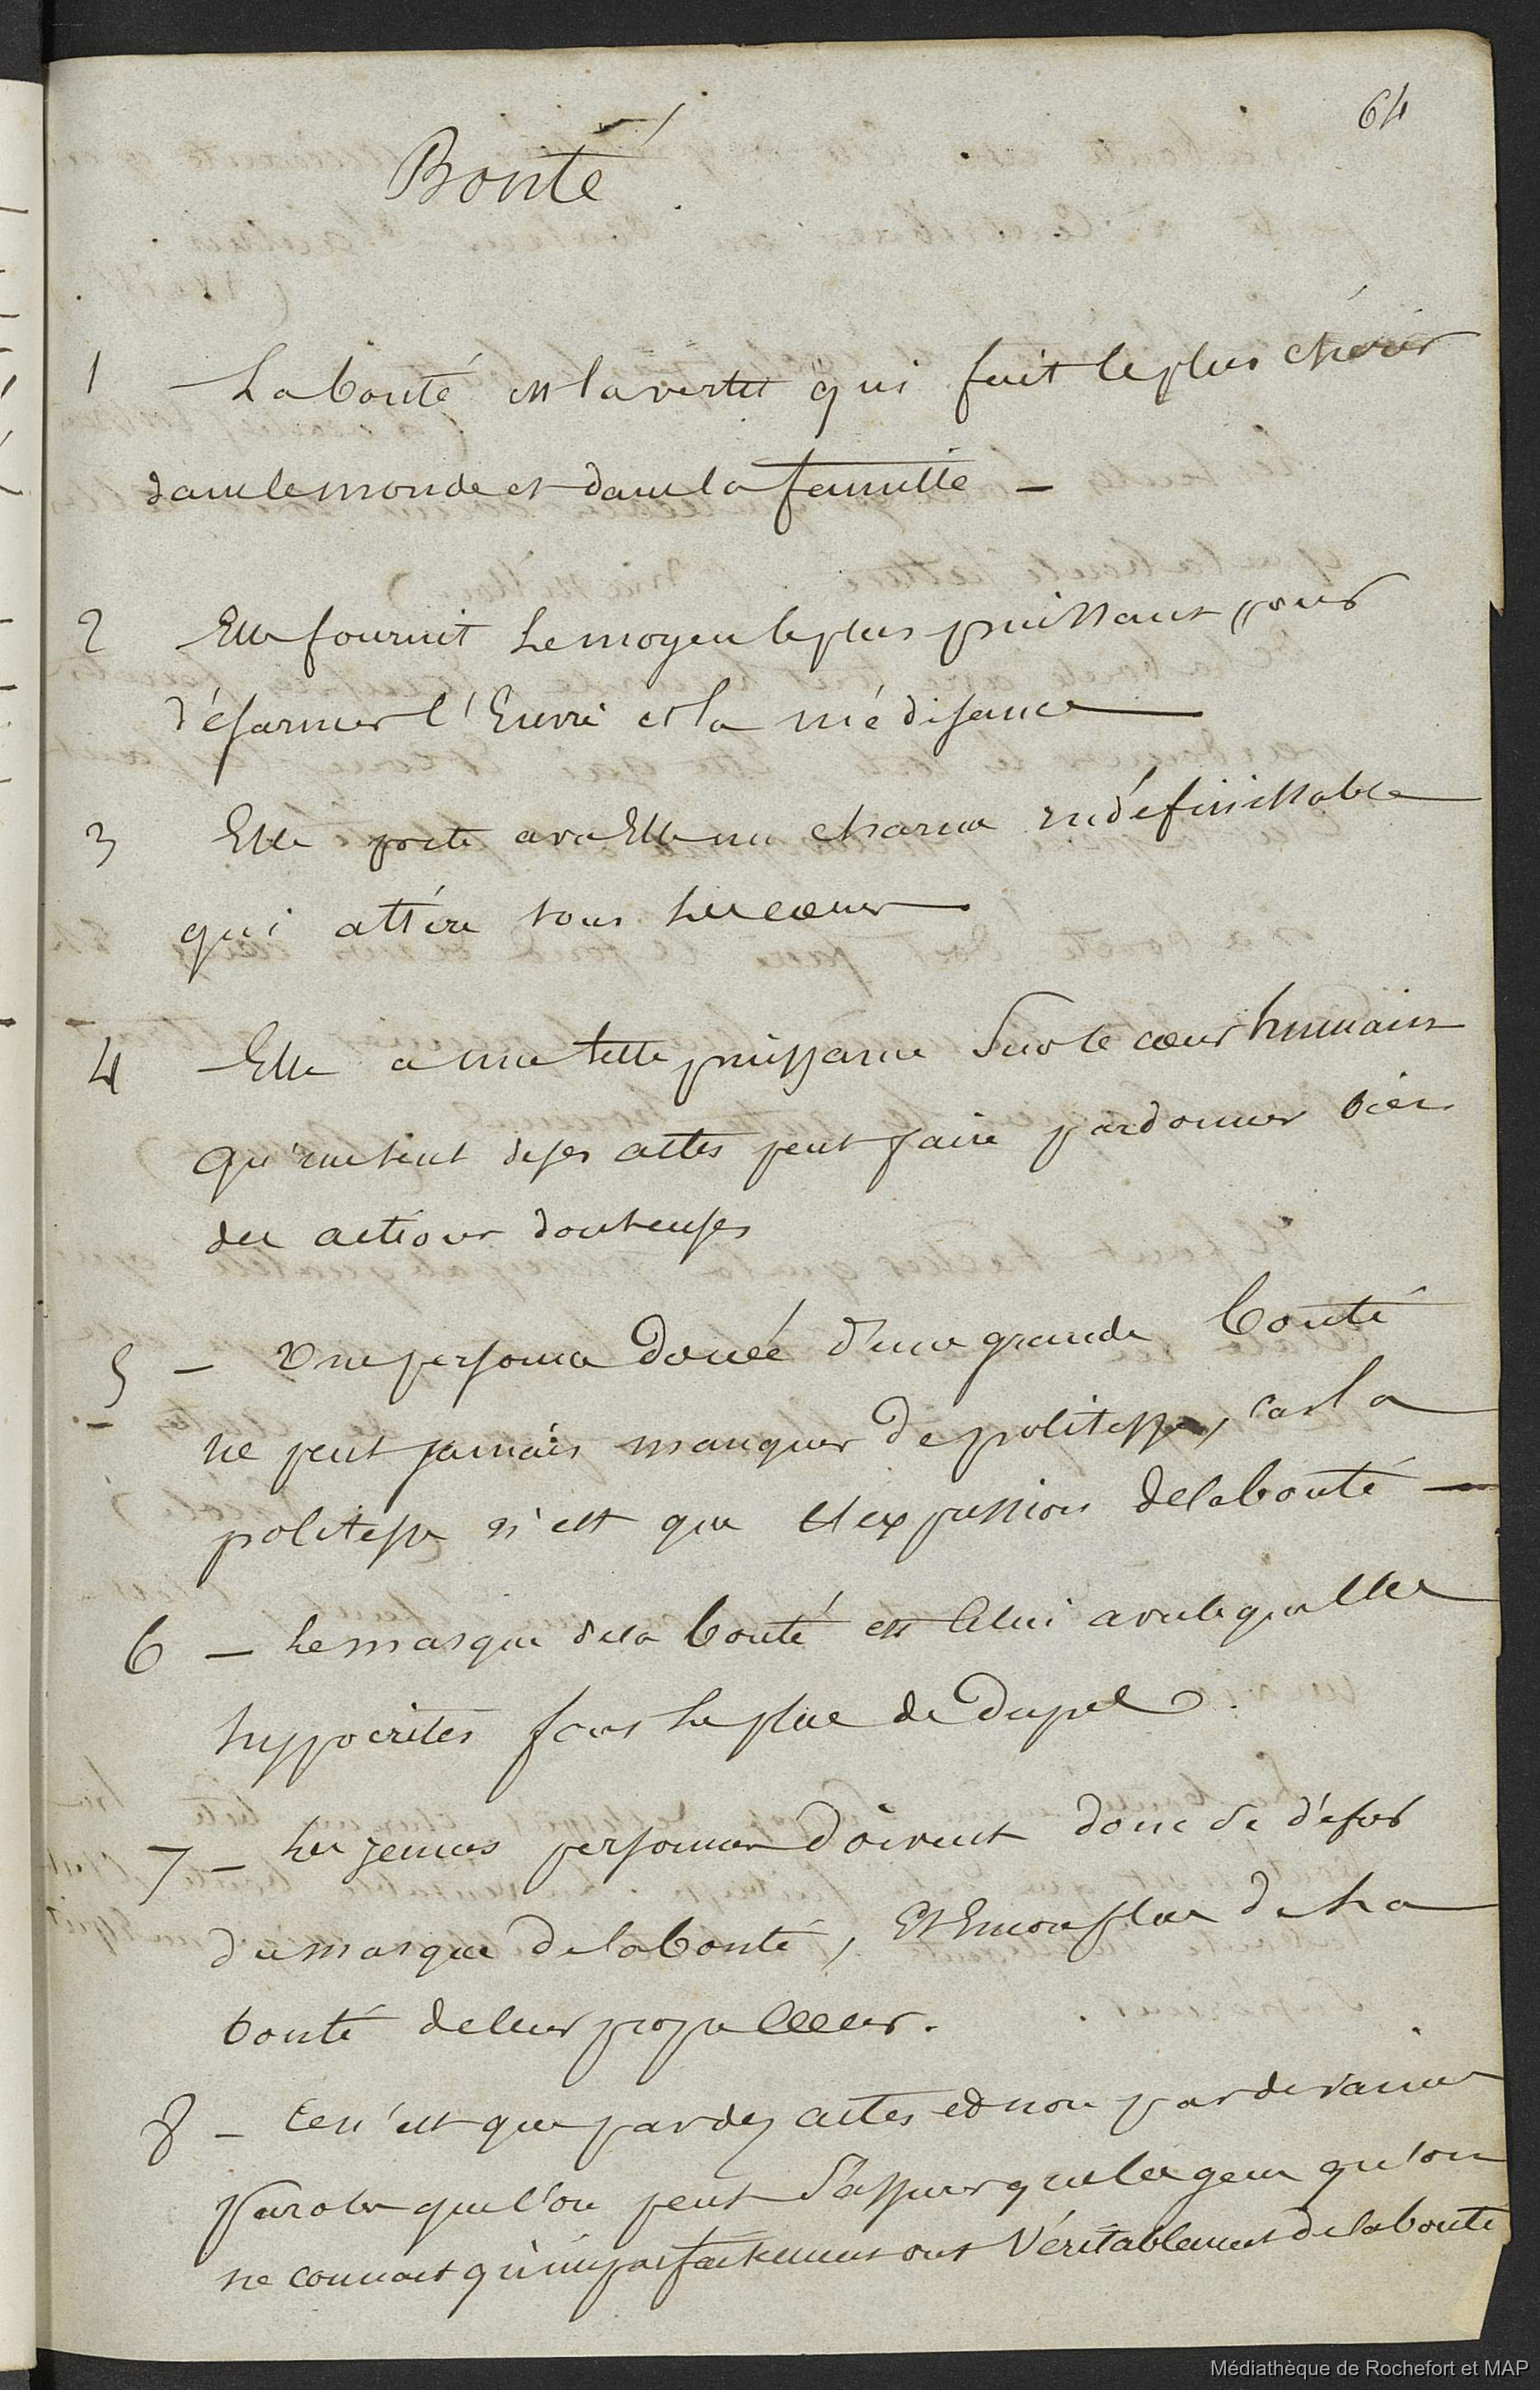 64
Bonté
1 La bonté est la vertu qui fait le plus chérir
dans le monde et dans la famille –
2 Elle fournit le moyen le plus puissant pour
désarmer l'Envie et la médisance
3 Elle porte avec Elle un charme indéfinissable
qui attire tous les cœurs
4 – Elle a une telle puissance sur le cœur humain
qu'un seul de ses actes peut faire pardonner bien
des actions douteuses
5 – Une personne douée d'une grande bonté
ne peut jamais manquer de politesse, car la
politesse n'est que l'expression de la bonté –
6 – Le masque de la bonté est celui avec lequel les
hypocrites font le plus de dupes.
7 – Les jeunes personnes doivent donc se défier
du masque de la bonté, Et Encore plus de la
bonté de leur propre cœur.
8 – Ce n'est que par des actes et non par de vaines
paroles que l'on peut s'assurer que les gens qu'on
ne connait qu'imparfaitement ont Véritablement de la bonté
Médiathèque de Rochefort et MAP